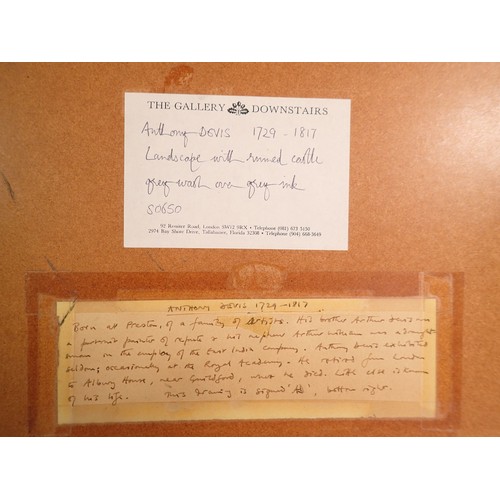 THE GALLERY DOWNSTAIRS
Anthony DEVIS 1729 - 1817
Landscape with ruined castle
grey wash over grey ink
S0650
92 Rossiter Road, London SW12 9RX • Telephone (081) 673 5150
2974 Bay Shore Drive, Tallahassee, Florida 32308 • Telephone (904) 668-3649
ANTHONY DEVIS 1729-1817
Born at Preston, of a family of Artists. His brother Arthur Devis was
a portrait painter of repute & his nephew Arthur William was a
in the employ of the East India Company. Anthony Devis exhibited
seldom, occasionally at the Royal Academy. He retired from London
to Albury House, near Guildford, where he died. Little else is known
of his life. This drawing is signed 'AD', bottom right.